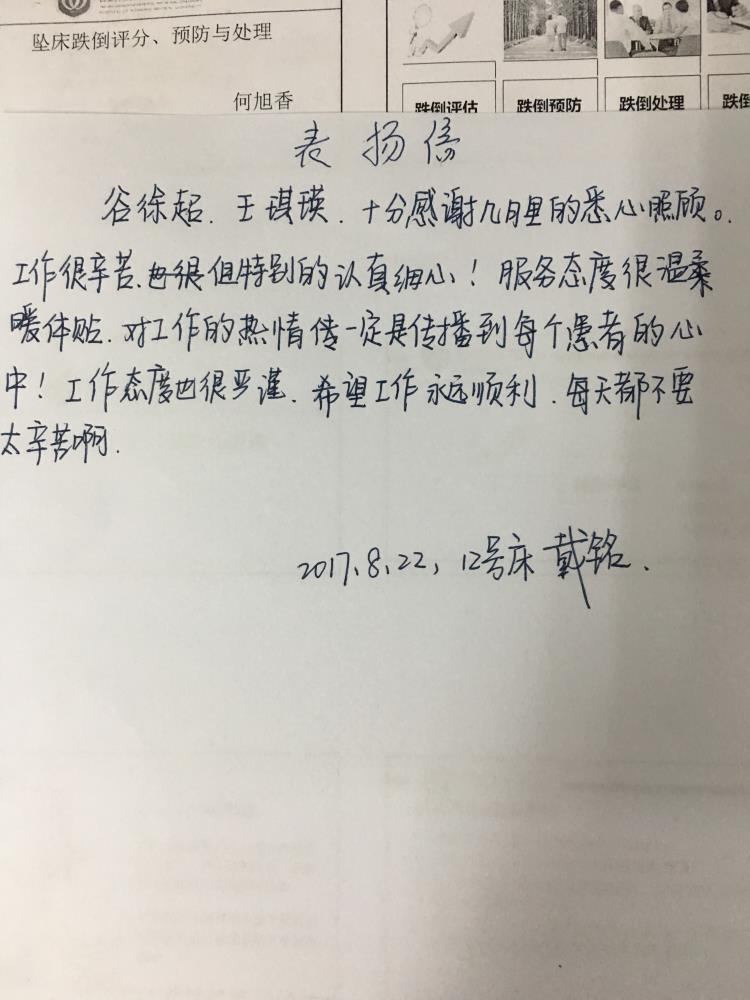 坠床跌倒评分、预防与处理
何旭香
跌倒评估 跌倒预防 跌倒处理 跌倒
表扬信
谷徐起、王琪瑛、十分感谢几月里的悉心照顾。
工作很辛苦、但特别的认真细心！服务态度很温柔
暖体贴、对工作的热情传一定是传播到每个患者的心
中！工作态度也很严谨、希望工作永远顺利、每天都不要
太辛苦啊.
2017、8、22, 12号床 戴铭.